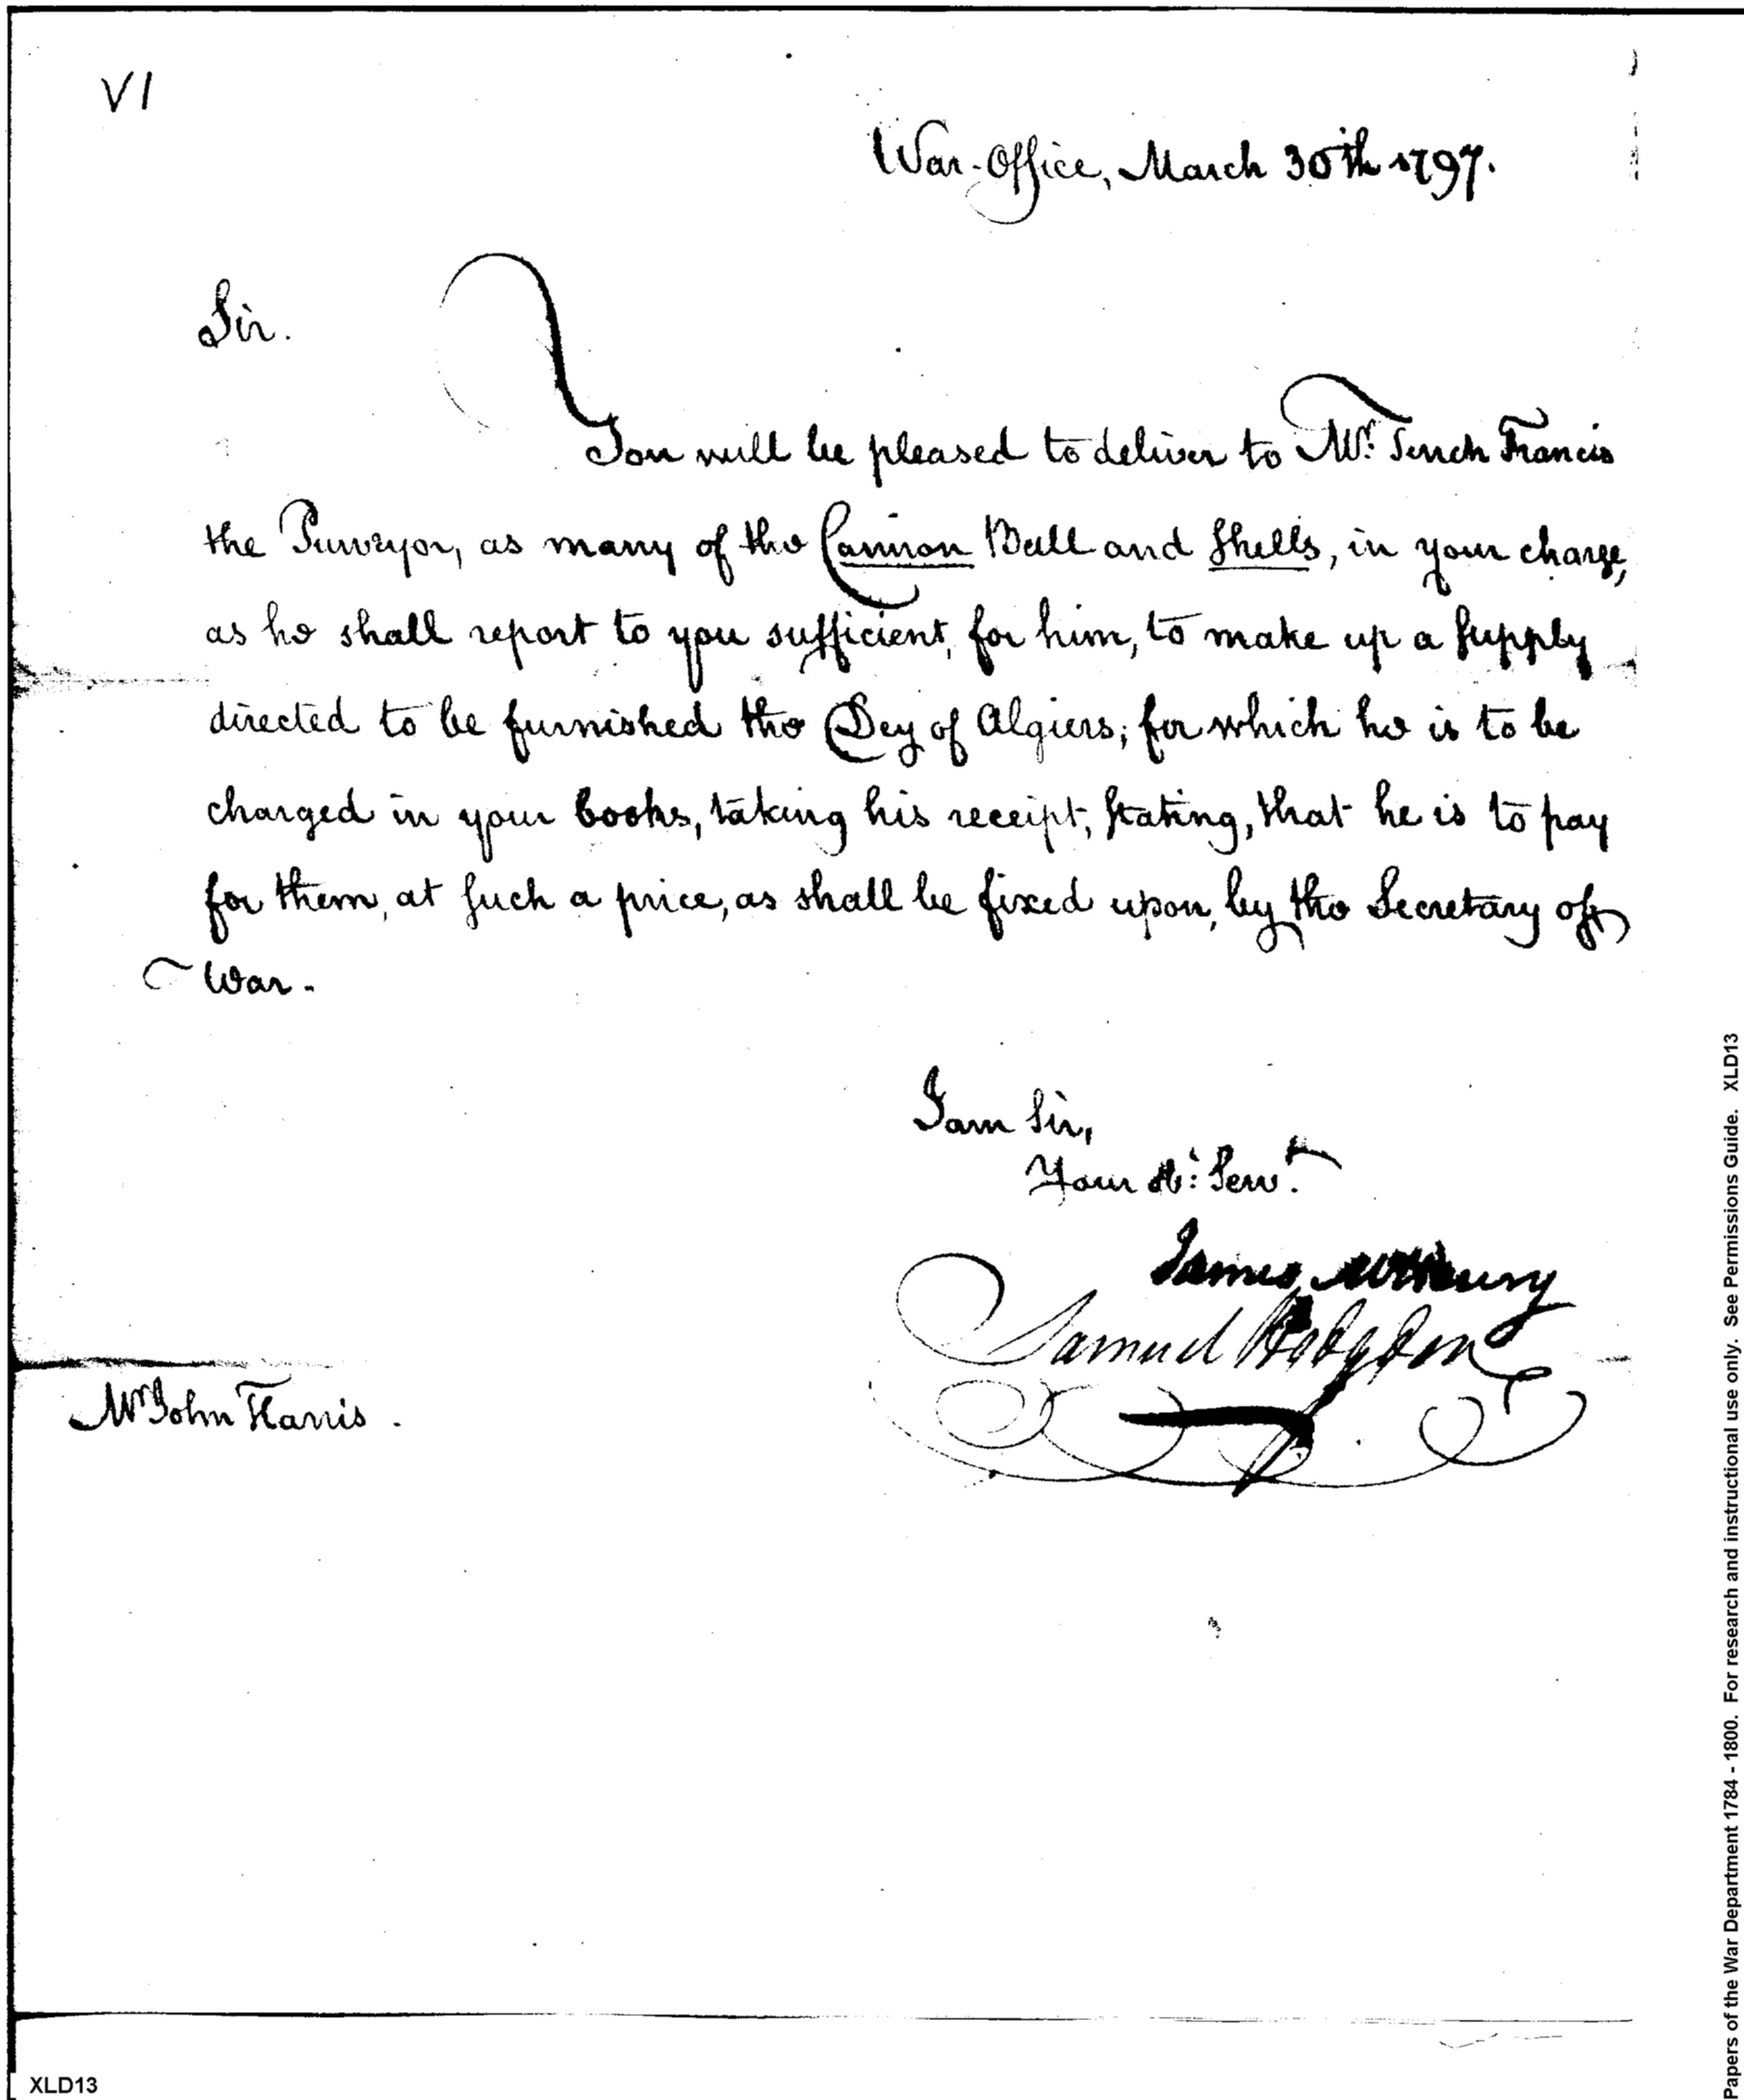 VI
War-Office, March 30th 1797.
Sir.
You will be pleased to deliver to Mr. Tench Francis
the Purveyor, as many of the Cannon Ball and Shells, in your charge,
as he shall report to you sufficient, for him, to make up a Supply
directed to be furnished the Dey of Algiers; for which he is to be
charged in your books, taking his receipt, stating, that he is to pay
for them, at such a price, as shall be fixed upon, by the Secretary of
War.
I am Sir,
Your Servt.
James McHenry
Samuel Hodgdon
Mr John Harris.
XLD13
Papers of the War Department 1784 - 1800. For research and instructional use only. See Permissions Guide. XLD13